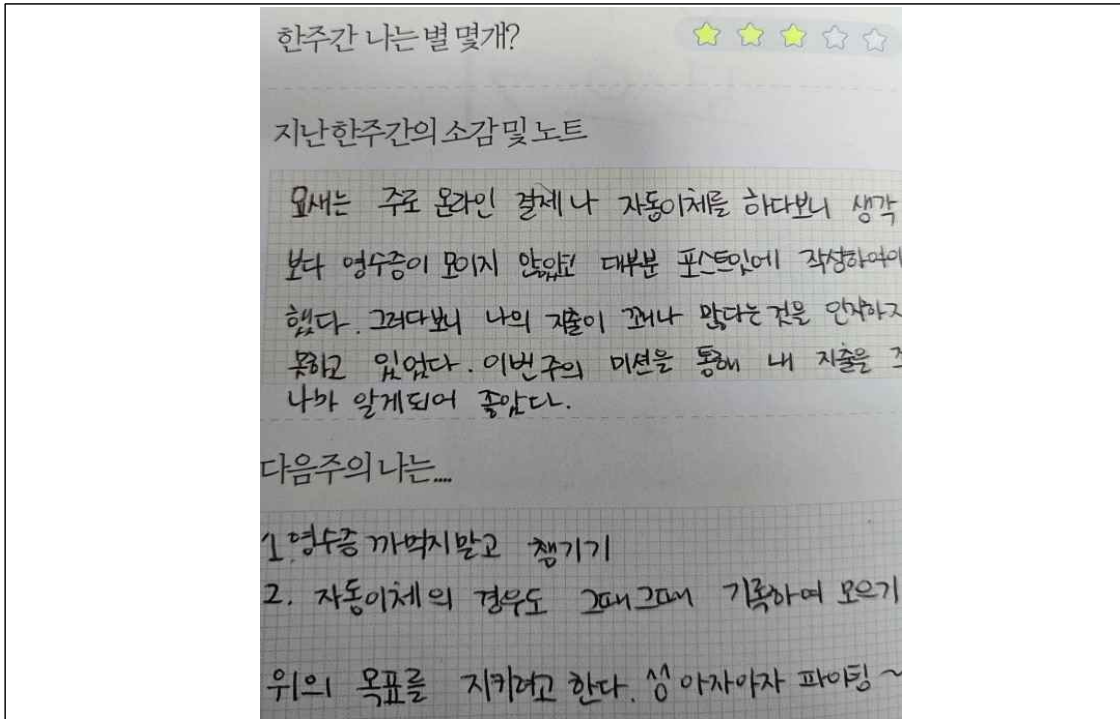 한주간 나는 별 몇개?
지난 한주간의 소감 및 노트
요새는 주로 온라인 결제나 자동이체를 하다보니 생각
보다 영수증이 모이지 않았고 대부분 포스트잇에 작성하여야
했다. 그러다보니 나의 지출이 꽤나 많다는 것을 인지하지
못하고 있었다. 이번주의 미션을 통해 내 지출을
나마 알게되어 좋았다.
다음주의 나는....
1. 영수증 까먹지말고 챙기기
2. 자동이체의 경우도 그때그때 기록하여 모으기
위의 목표를 지키려고 한다. 아자아자 파이팅 ~